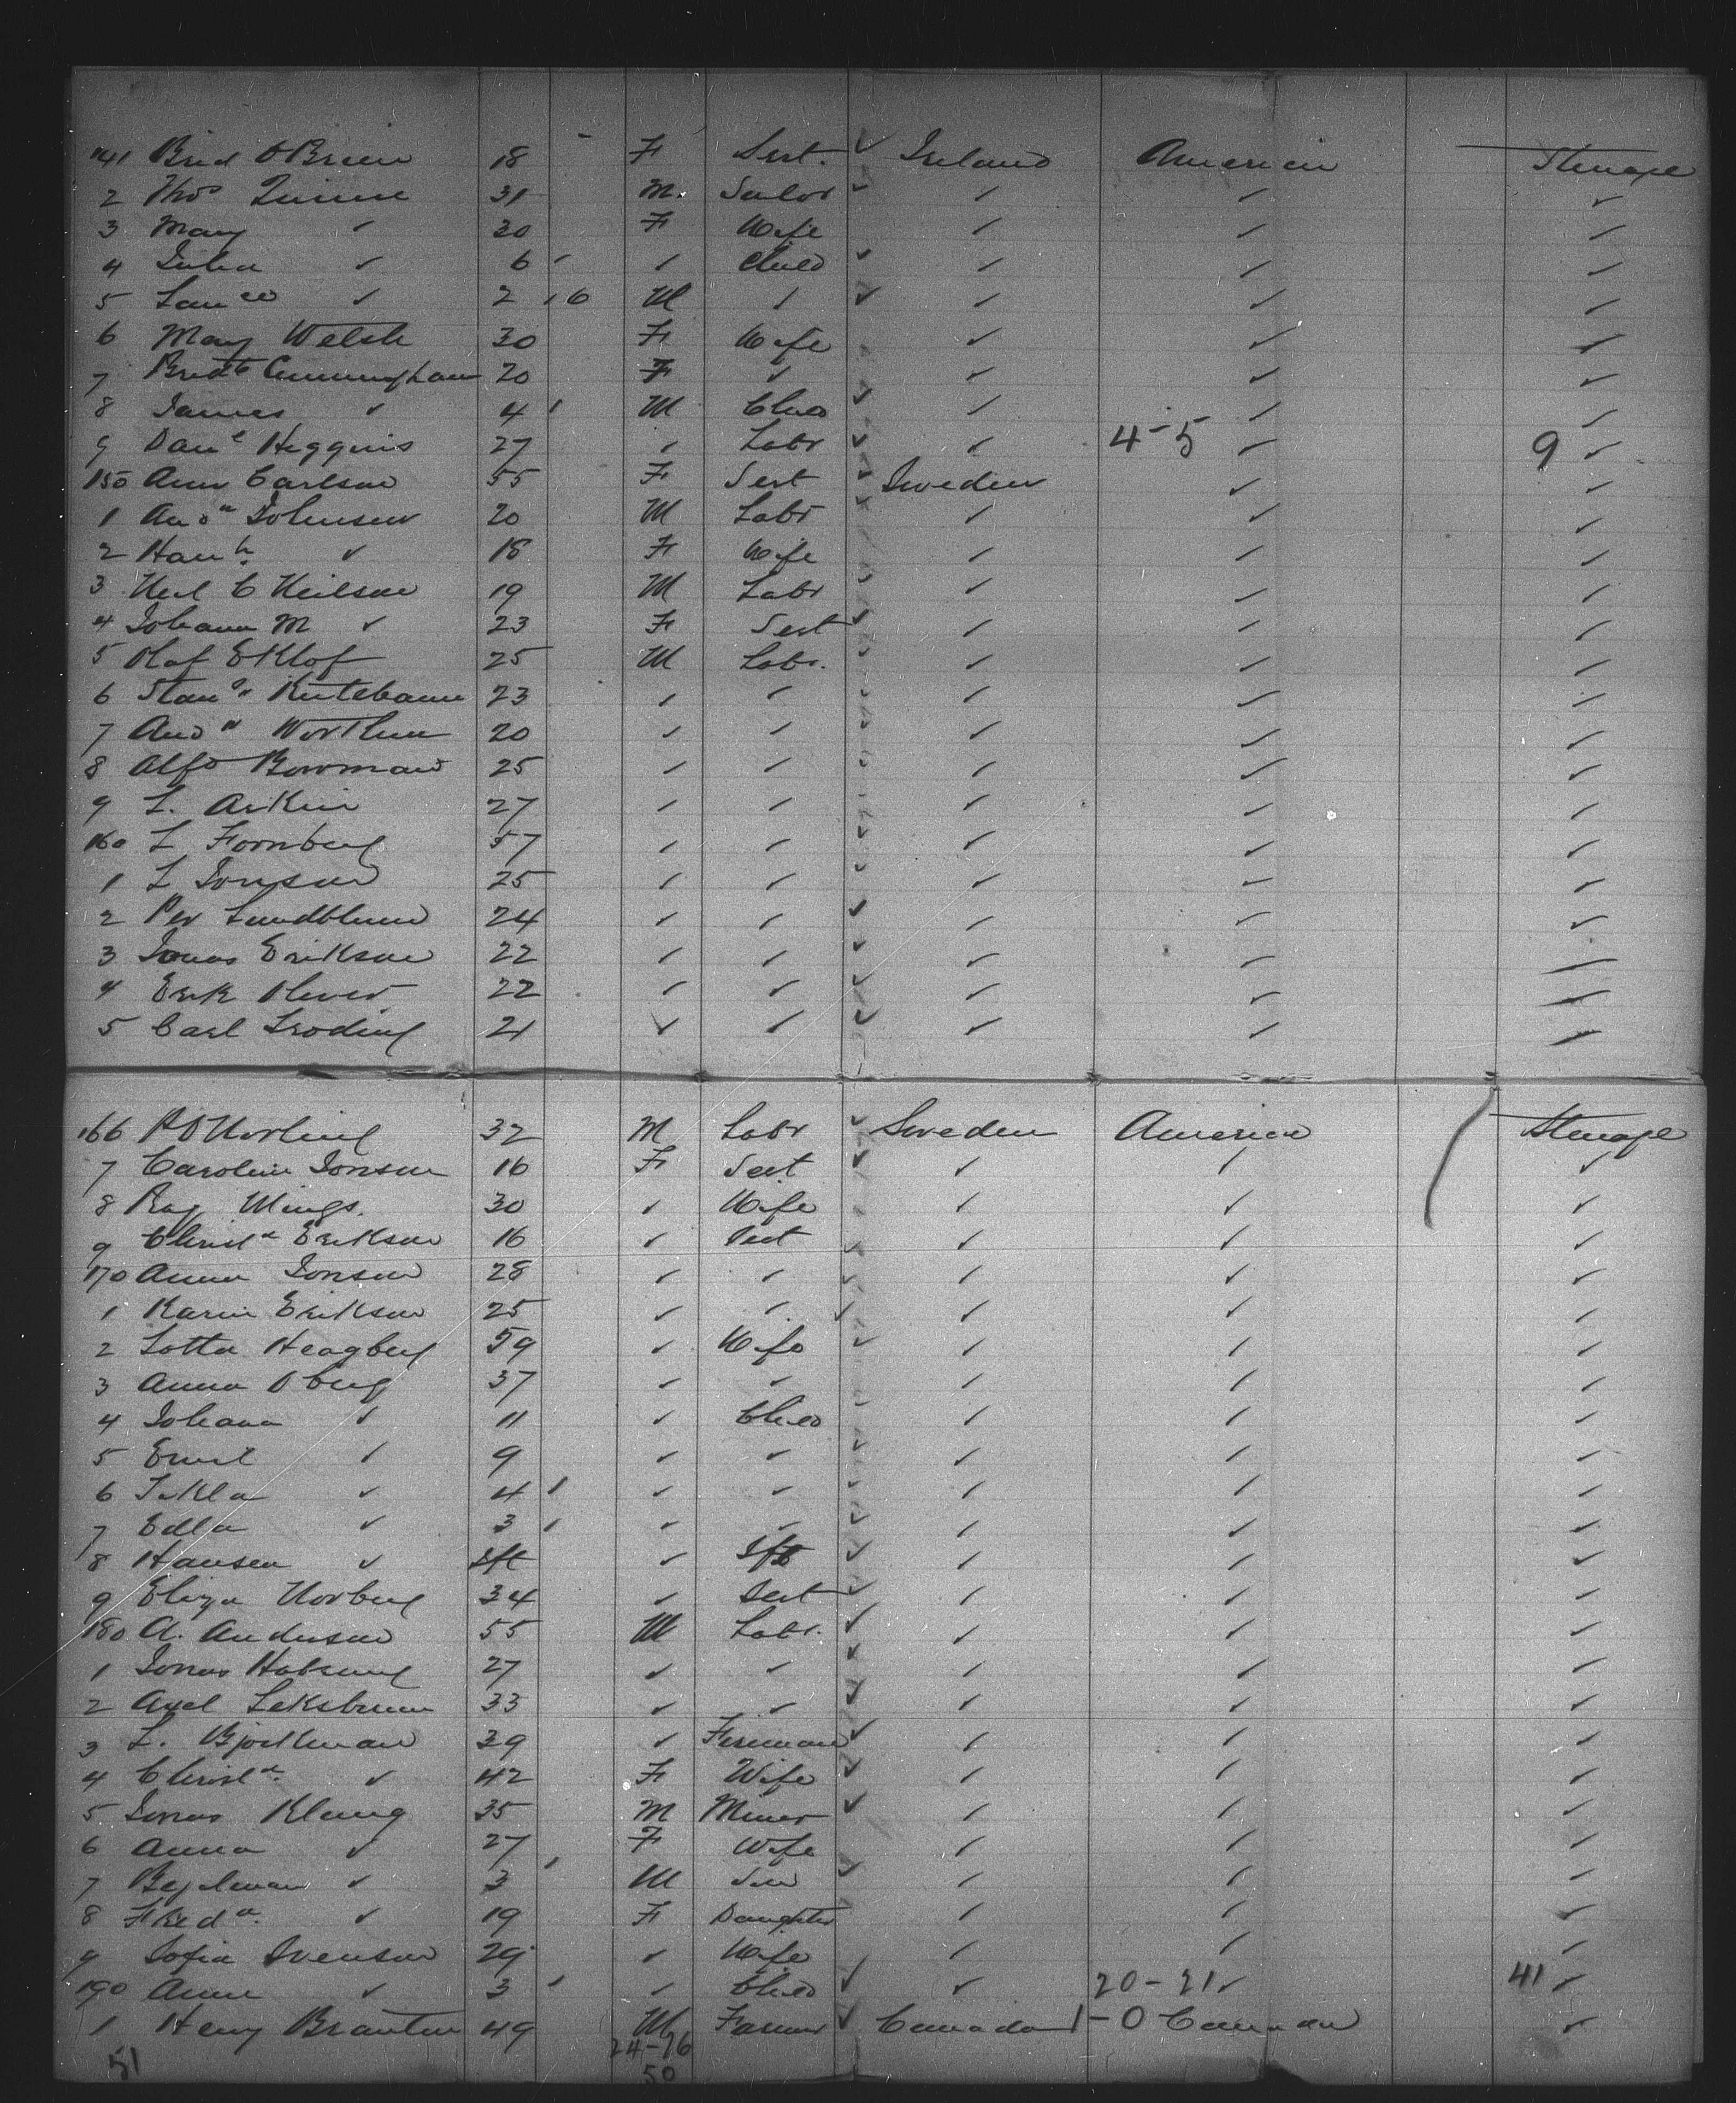 141 Brid OBrien 18 F Sert. Ireland America Steerage
2 Thos Quinn 31 M. Sailor ✓ ✓ ✓
3 Mary ✓ 30 F Wife ✓ ✓ ✓
4 Julia ✓ 6 ✓ Child ✓ ✓ ✓
5 Lauce ✓ 2 6 M ✓ ✓ ✓ ✓
6 Mary Welsh 30 F Wife ✓ ✓ ✓
7 Bridt Cunningham 20 F ✓ ✓ ✓ ✓
8 James ✓ 4 M Child ✓ ✓ ✓
9 Danl Higgins 27 ✓ Labr ✓ 4-5 ✓ 9 ✓
150 Ann Carlson 55 F Sert Sweden ✓ ✓
1 Andw Johnson 20 M Labr ✓ ✓ ✓
2 Hanh ✓ 18 F Wife ✓ ✓ ✓
3 Neil C Neilson 19 M Labr ✓ ✓ ✓
4 Johann M ✓ 23 F Sert ✓ ✓ ✓
5 Olof EKlof 25 M Labr. ✓ ✓ ✓
6 23 ✓ ✓ ✓ ✓ ✓
7 Andw 20 ✓ ✓ ✓ ✓ ✓
8 Alfd Bowman 25 ✓ ✓ ✓ ✓ ✓
9 L. 27 ✓ ✓ ✓ ✓ ✓
160 L Fornberg 57 ✓ ✓ ✓ ✓ ✓
1 L Jonson 25 ✓ ✓ ✓ ✓ ✓
2 Per Lundblum 24 ✓ ✓ ✓ ✓ ✓
3 Jonas Erikson 22 ✓ ✓ ✓ ✓ ✓
4 Erik 22 ✓ ✓ ✓ ✓ ✓
5 Carl Froding 21 ✓ ✓ ✓ ✓ ✓
166 P O Norling 32 M Labr Sweden America Steerage
7 Carolin Jonson 16 F Sert ✓ ✓ ✓
8 30 ✓ Wife ✓ ✓ ✓
9 Christa Erikson 16 ✓ Sert ✓ ✓ ✓
170 Anna Jonson 28 ✓ ✓ ✓ ✓ ✓
1 Karin Erikson 25 ✓ ✓ ✓ ✓ ✓
2 Lotta Heagberg 59 ✓ Wife ✓ ✓ ✓
3 Anna Oberg 37 ✓ ✓ ✓ ✓ ✓
4 Johana ✓ 11 ✓ Child ✓ ✓ ✓
5 Emil ✓ 9 ✓ ✓ ✓ ✓ ✓
6 Tekla ✓ 4 ✓ ✓ ✓ ✓ ✓
7 Edla ✓ 3 ✓ ✓ ✓ ✓ ✓
8 Hansen ✓ Ift ✓ Ift ✓ ✓ ✓
9 Eliza Norberg 34 ✓ Sert ✓ ✓ ✓
180 A. Anderson 55 M Labr. ✓ ✓ ✓
1 Jonas 27 ✓ ✓ ✓ ✓ ✓
2 Axel 33 ✓ ✓ ✓ ✓ ✓
3 L. Bjorkman 39 ✓ Fireman ✓ ✓ ✓
4 Christa. ✓ 42 F Wife ✓ ✓ ✓
5 Jonas Klang 35 M Miner ✓ ✓ ✓
6 Anna ✓ 27 F Wife ✓ ✓ ✓
7 ✓ 3 M Son ✓ ✓ ✓
8 Freda. ✓ 19 F Daughter ✓ ✓ ✓
9 Sofia Svenson 29 ✓ Wife ✓ ✓ ✓
190 Anna ✓ 3 ✓ Child ✓ 20-21 ✓ 41 ✓
1 Henry Branton 49 M Farmer Canada 1-0 Canada ✓
51 24-26
50